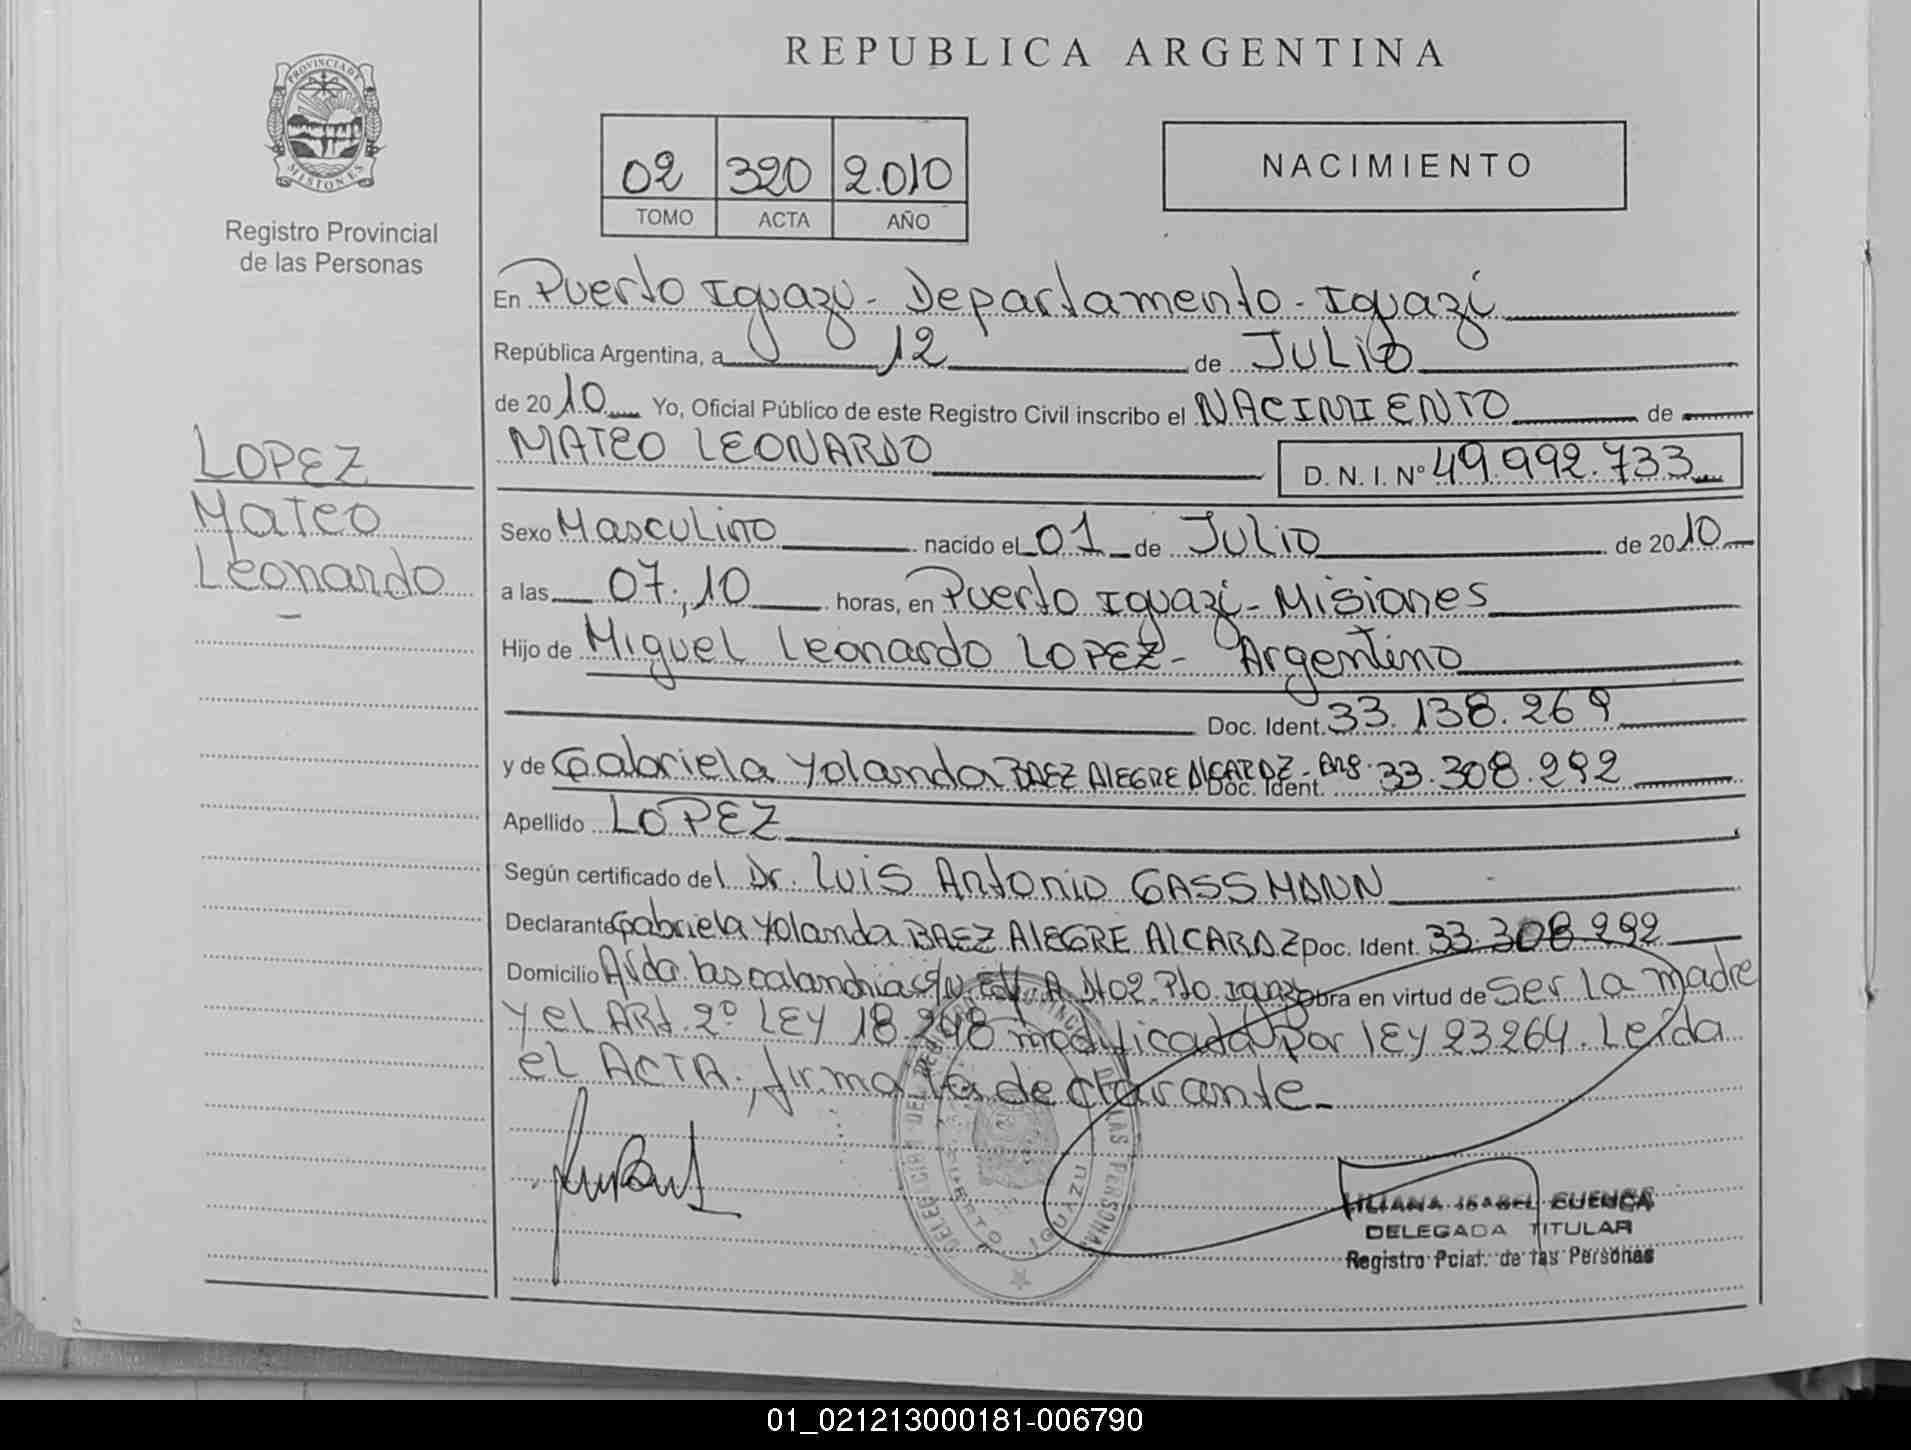 REPUBLICA ARGENTINA
PROVINCIA DE
MISIONES
Registro Provincial
de las Personas
02 320 2.010
TOMO ACTA AÑO
NACIMIENTO
LOPEZ
Mateo
Leonardo
En Puerto Iguazú - Departamento - Iguazú
República Argentina, a 12 de JULIO
de 2010 Yo, Oficial Público de este Registro Civil inscribo el NACIMIENTO de
MATEO LEONARDO D. N. I. Nº 49.992.733
Sexo Masculino nacido el 01 de JULIO de 2010
a las 07:10 horas, en Puerto Iguazú - Misiones
Hijo de Miguel Leonardo LOPEZ - Argentino
Doc. Ident. 33.138.269
y de Gabriela Yolanda BAEZ ALEGRE ALCARAZ - Arg. Doc. Ident. 33.308.292
Apellido LOPEZ
Según certificado del Dr. Luis Antonio GASSMANN
Declarante Gabriela Yolanda BAEZ ALEGRE ALCARAZ Doc. Ident. 33.308.292
Domicilio Avda. las calandrias S/N A Pto. Iguazú obra en virtud de Ser la madre
y el ART. 2º LEY 18.248 modificada por LEY 23264. Leída
el ACTA, firma la declarante.
DELEGACIA DEL REGISTRO PROVINCIAL DE LAS PERSONAS
PUERTO IGUAZU
LILIANA ISABEL CUENCA
DELEGADA TITULAR
Registro Pcial. de las Personas
01_021213000181-006790